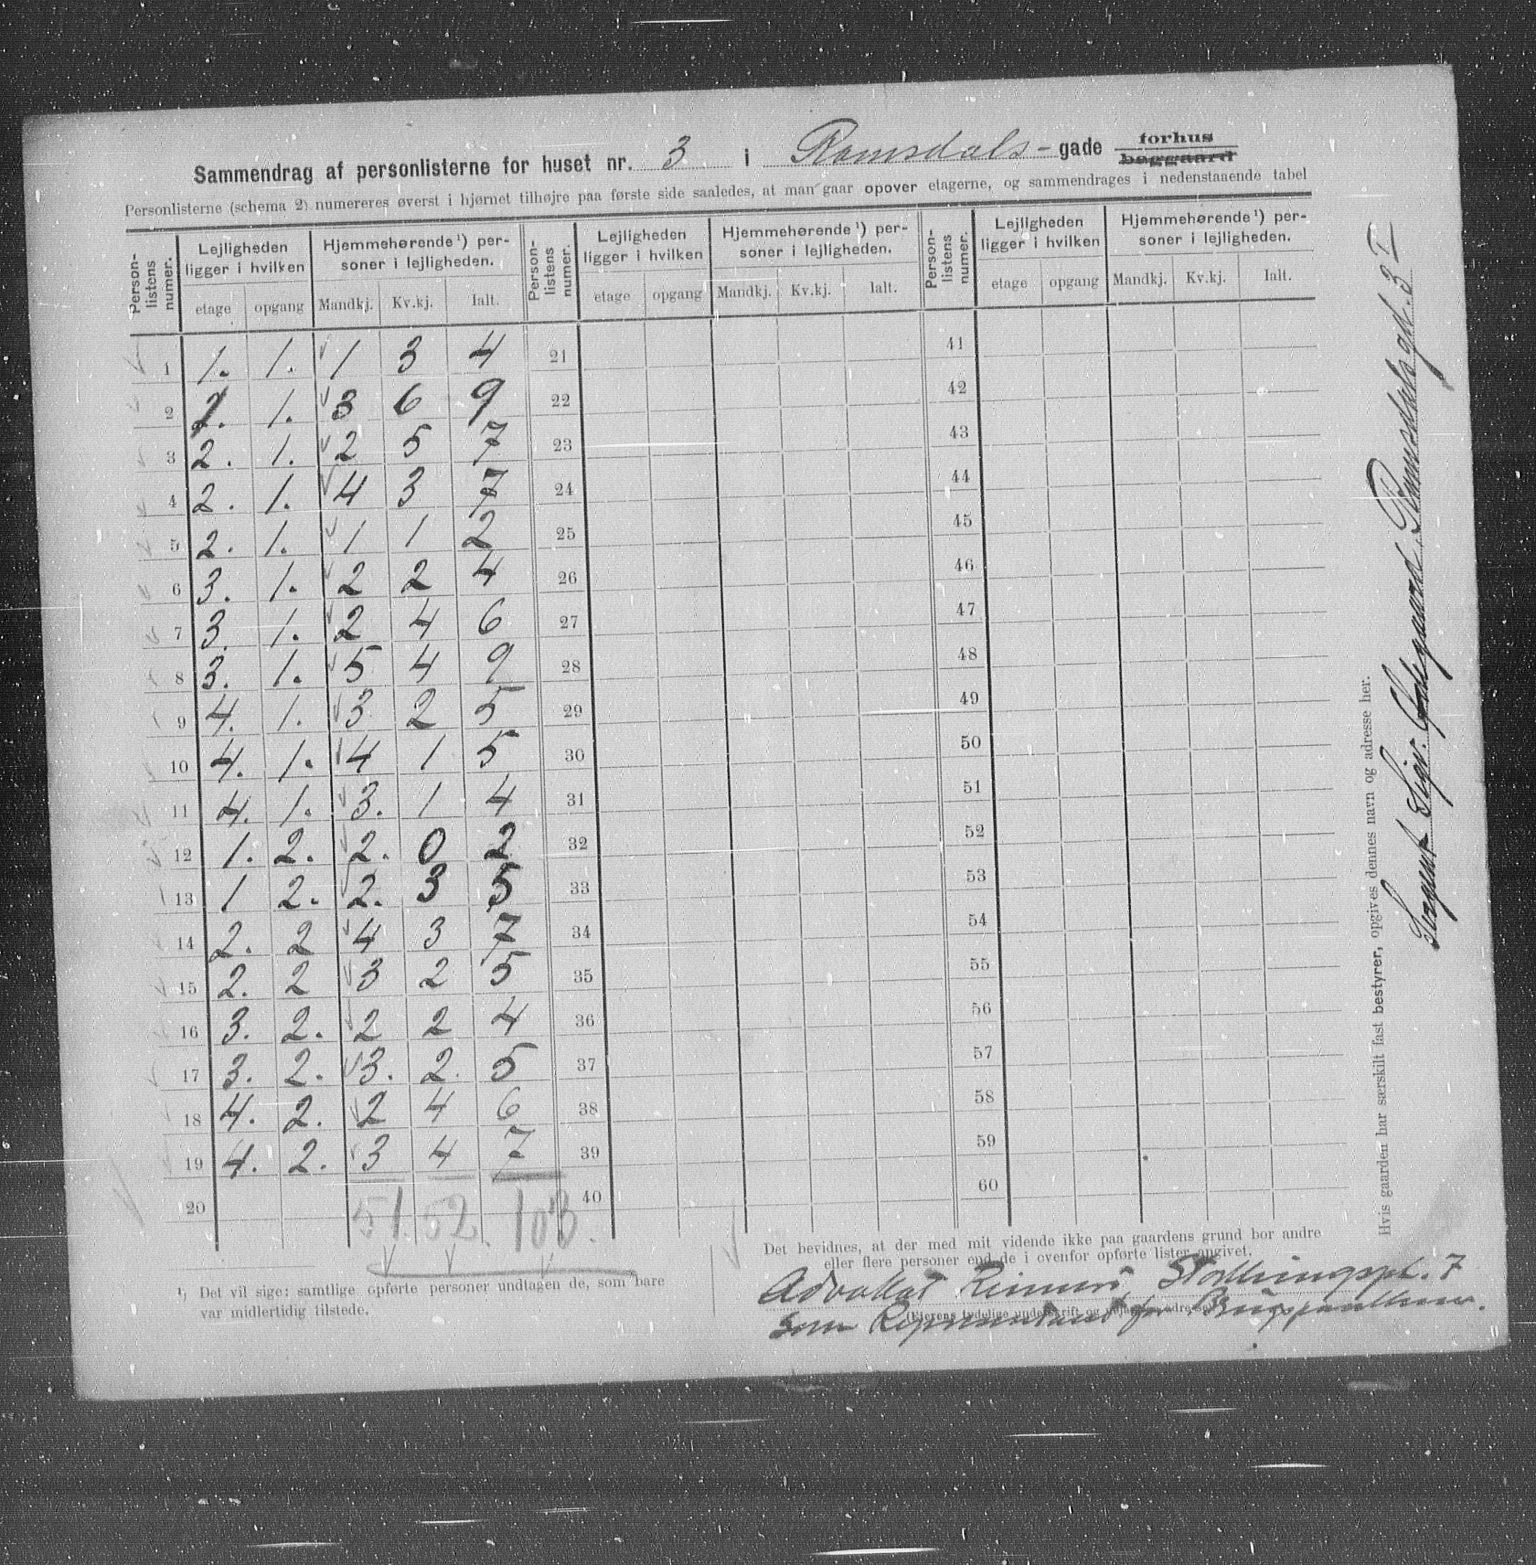 Sammendrag af personlisterne for huset nr. 3 i Ramsdals-gade forhus
baggaard
Personlisterne (schema 2) numereres øverst i hjørnet tilhøjre paa første side saaledes, at man gaar opover etagerne, og sammendrages i nedenstaaende tabel
Person-listens numer. Lejligheden ligger i hvilken Hjemmehørende¹) per-soner i lejligheden. Person-listens numer. Lejligheden ligger i hvilken Hjemmehørende¹) per-soner i lejligheden. Person-listens numer. Lejligheden ligger i hvilken Hjemmehørende¹) per-soner i lejligheden.
etage opgang Mandkj. Kv.kj. Ialt. etage opgang Mandkj. Kv.kj. Ialt. etage opgang Mandkj. Kv.kj. Ialt.
1 1. 1. 1 3 4 21 41
2 2. 1. 3 6 9 22 42
3 2. 1. 2 5 7 23 43
4 2. 1. 4 3 7 24 44
5 2. 1. 1 1 2 25 45
6 3. 1. 2 2 4 26 46
7 3. 1. 2 4 6 27 47
8 3. 1. 5 4 9 28 48
9 4. 1. 3 2 5 29 49
10 4. 1. 4 1 5 30 50
11 4. 1. 3. 1 4 31 51
12 1. 2. 2. 0 2 32 52
13 1 2. 2. 3 5 33 53
14 2. 2 4 3 7 34 54
15 2. 2 3 2 5 35 55
16 3. 2. 2 2 4 36 56
17 3. 2. 3. 2. 5 37 57
18 4. 2. 2 4 6 38 58
19 4. 2. 3 4 7 39 59
20 51. 52. 103. 40 60
¹) Det vil sige: samtlige opførte personer undtagen de, som bare
var midlertidig tilstede.
Det bevidnes, at der med mit vidende ikke paa gaardens grund bor andre
eller flere personer end de i ovenfor opførte lister angivet.
Advokat Stortingspl. 7
som Repræsentant for
Hvis gaarden har særskilt fast bestyrer, opgives dennes navn og adresse her.
Sergent Sigv. Ødegaard, Ramsdalsgd. 3 I